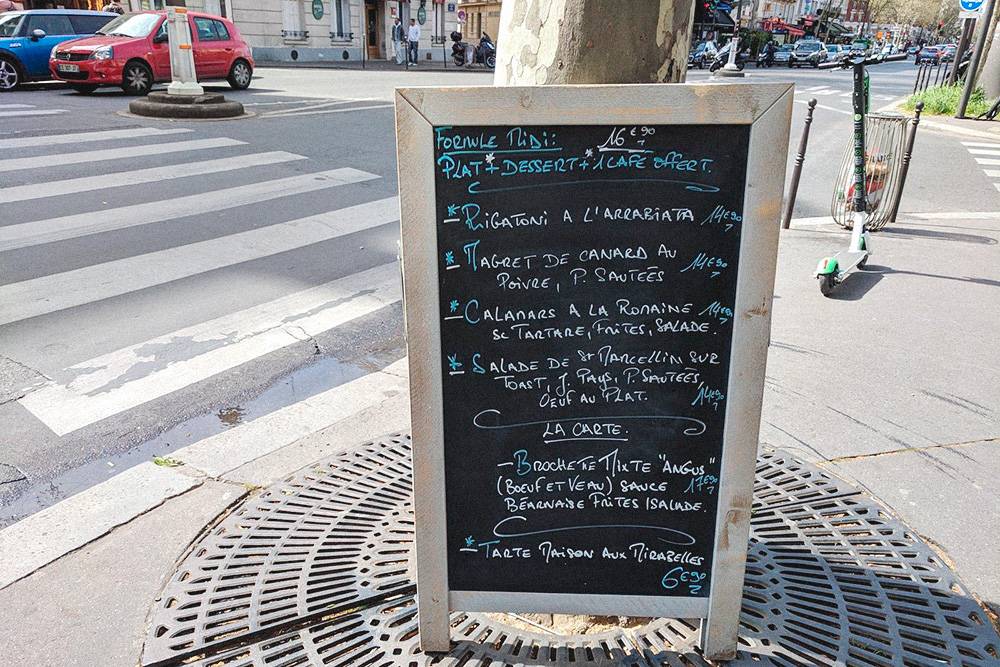 FORMULE MIDI: 16€90
PLAT*+DESSERT*+1 CAFÉ OFFERT.
*RIGATONI A L'ARRABIATA 14€90
*MAGRET DE CANARD AU
POIVRE, P. SAUTEÉS 14€90
*CALAMARS A LA ROMAINE 14€90
SC TARTARE, FRITES, SALADE.
*SALADE DE St MARCELLIN SUR
TOAST, J. PAYS, P. SAUTEÉS,
OEUF AU PLAT. 14€90
LA CARTE.
-BROCHETTE MIXTE "ANGUS"
(BOEUF ET VEAU) SAUCE 17€90
BÉARNAISE FRITES/SALADE.
*TARTE MAISON AUX MIRABELLES
6€90